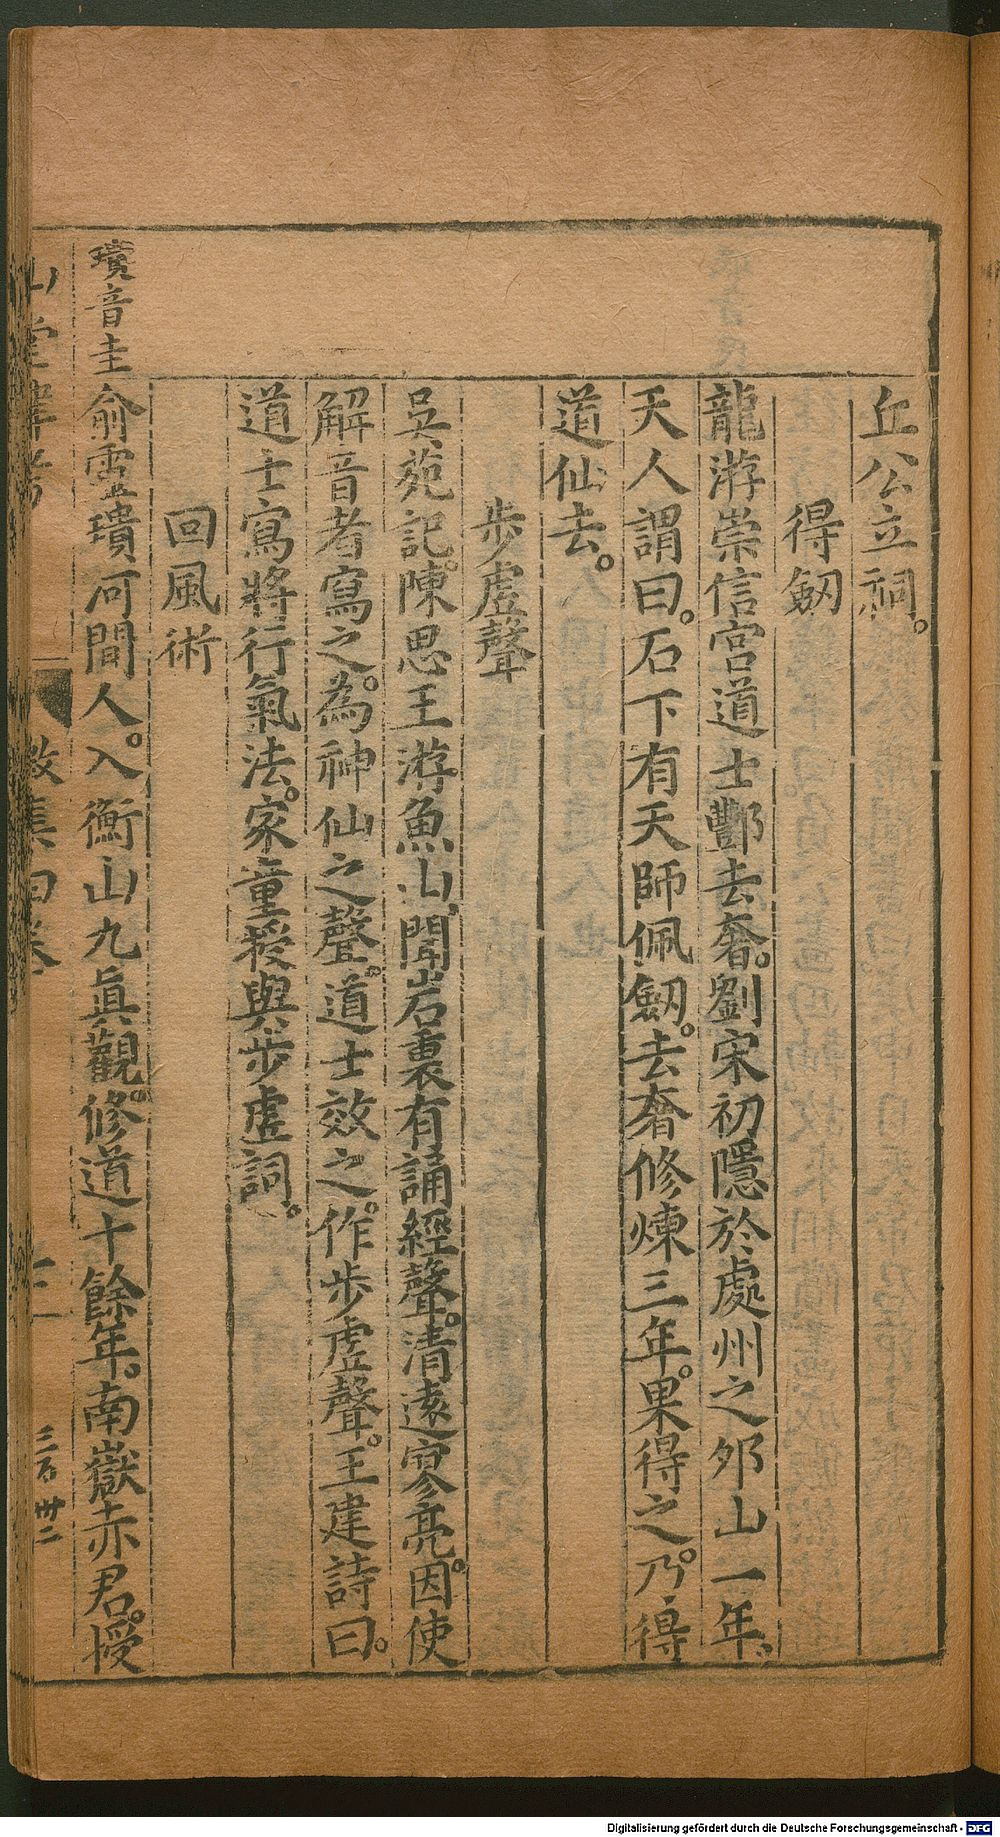 丘公立祠。
得劔
龍游崇信宮道士酆去奢。劉宋初隱於處州之夘山一年、
天人謂曰。石下有天師佩劔。去奢修煉三年。果得之。乃得
道仙去。
步虛聲
吳苑記。陳思王游魚山、聞岩裏有誦經聲。清遠寥亮。因使
解音者寫之。為神仙之聲。道士效之。作步虛聲。王建詩曰。
道士寫將行氣法。家童授與步虛詞。
回風術
璝音圭
俞靈璝河間人。入衡山九真觀。修道十餘年。南嶽赤君。授
山堂肆考
三百卅二
Digitalisierung gefördert durch die Deutsche Forschungsgemeinschaft - DFG